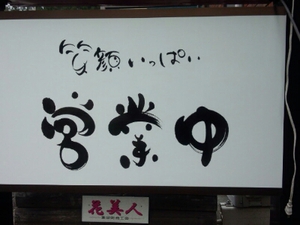 笑顔いっぱい
営業中
花美人